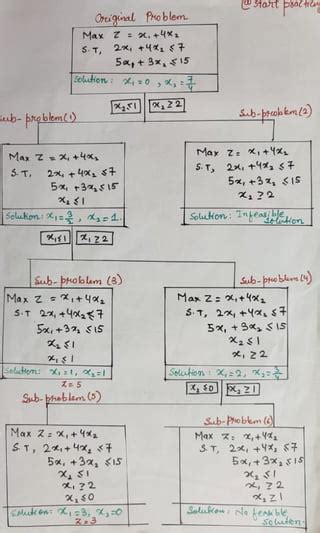 @ Start practicing
Original Problem
Max Z = x₁+4x₂
S.T, 2x₁+4x₂ ≤7
5x₁+3x₂ ≤15
Solution: x₁=0, x₂=7/4
x₂≤1 x₂≥2
Sub-problem(1)
Sub-problem(2)
Max Z = x₁+4x₂
S.T, 2x₁+4x₂ ≤7
5x₁+3x₂ ≤15
x₂≤1
Solution: x₁=3/2, x₂=1.
Max Z = x₁+4x₂
S.T, 2x₁+4x₂ ≤7
5x₁+3x₂ ≤15
x₂ ≥2
Solution: Infeasible
Solution
x₁≤1 x₁≥2
Sub-problem (3)
Sub-problem(4)
Max Z = x₁+4x₂
S.T 2x₁+4x₂≤7
5x₁+3x₂ ≤15
x₂ ≤1
x₁ ≤1
Solution: x₁=1, x₂=1
Z=5
Max Z = x₁+4x₂
S.T, 2x₁+4x₂ ≤7
5x₁+3x₂ ≤15
x₂ ≤1
x₁ ≥2
Solution: x₁=2, x₂=3/4
x₂≤0 x₂≥1
Sub-problem(5)
Sub-problem(6)
Max Z = x₁+4x₂
S.T, 2x₁+4x₂ ≤7
5x₁+3x₂ ≤15
x₂ ≤1
x₁ ≥2
x₂ ≤0
Solution: x₁=3, x₂=0
Z=3
Max Z = x₁+4x₂
S.T, 2x₁+4x₂ ≤7
5x₁+3x₂≤15
x₂ ≤1
x₁ ≥2
x₂ ≥1
Solution: No feasible
Solution.